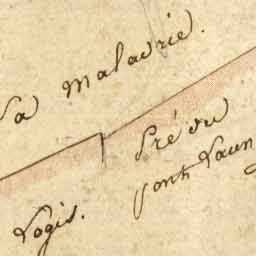 La maladrie.
Pré du
pont Laun
Logis.